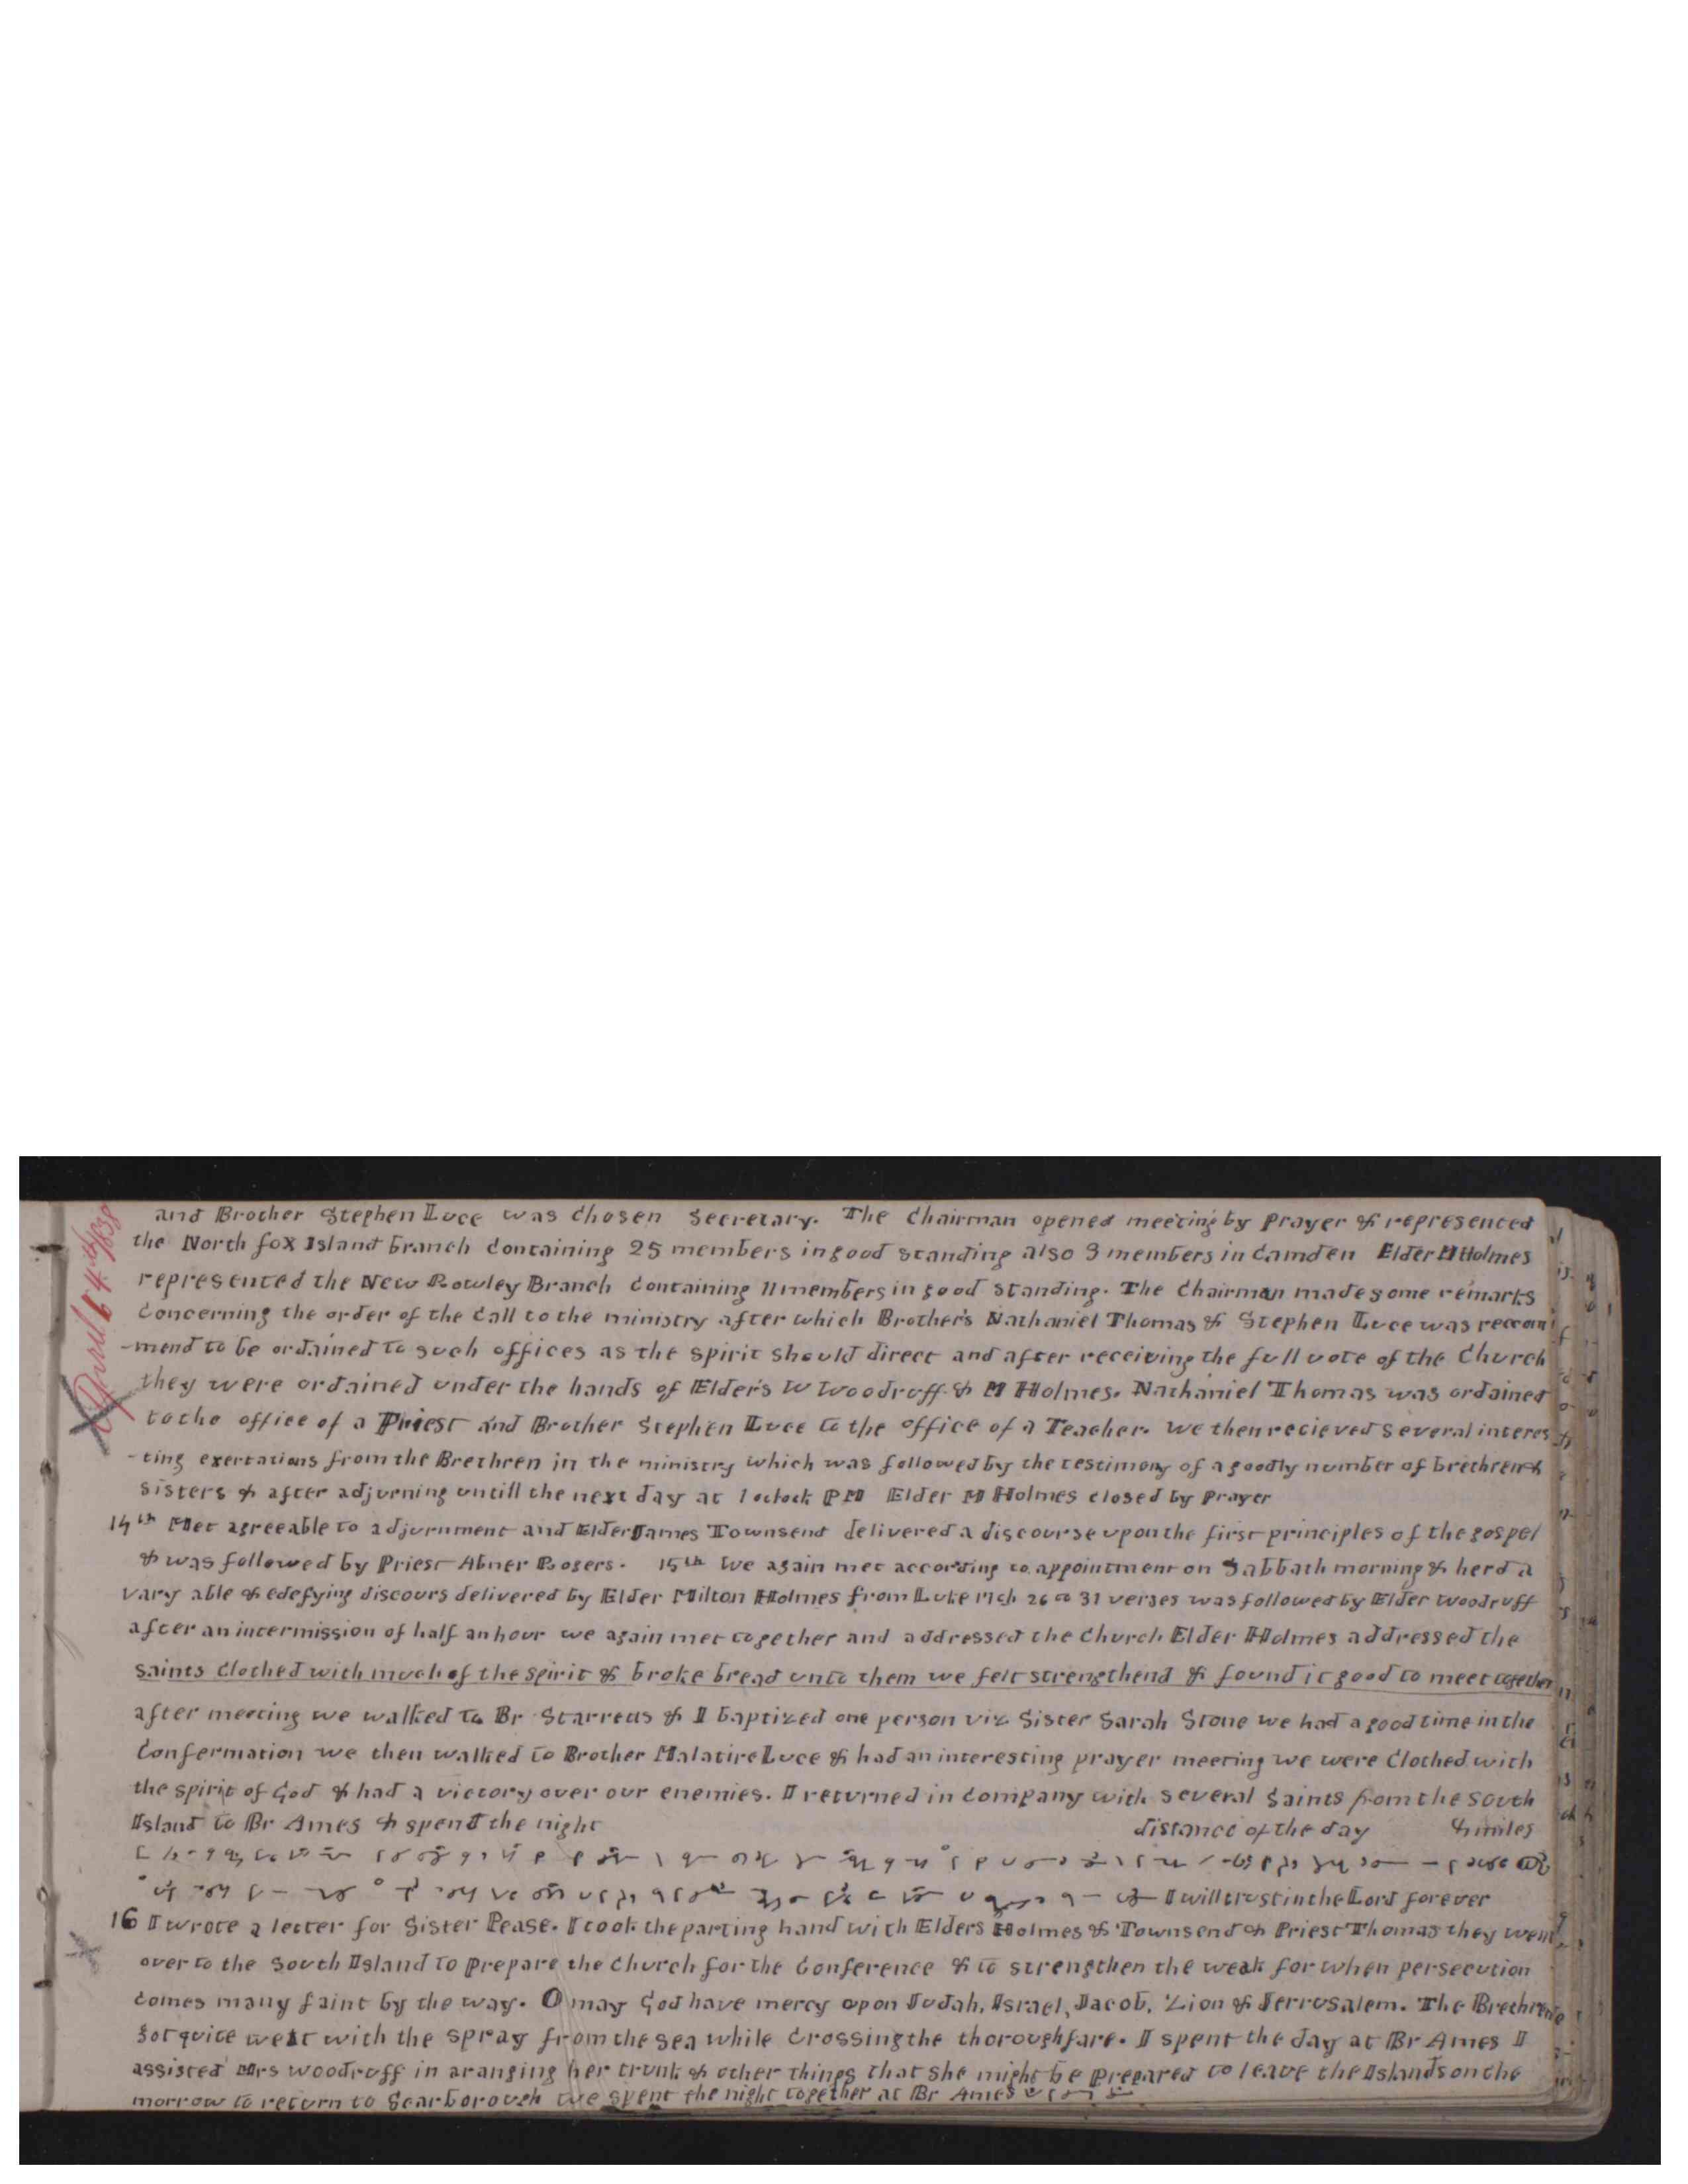 April 14th 1838
and Brother Stephen Luce was chosen Secretary. The Chairman opened meeting by Prayer & represented
the North fox Island branch Containing 25 members in good standing also 3 members in Camden Elder M Holmes
represented the New Rowley Branch Containing 11 members in good standing. The Chairman made some remarks
Concerning the order of the Call to the ministry after which Brother's Nathaniel Thomas & Stephen Luce was recom
-mend to be ordained to such offices as the spirit should direct and after receiving the full vote of the Church
they were ordained under the hands of Elder's W Woodruff & M Holmes. Nathaniel Thomas was ordained
to the office of a Priest and Brother Stephen Luce to the office of a Teacher. We then recieved several interes
-ting exertations from the Brethren in the ministry which was followed by the testimony of a goodly number of brethren &
sisters & after adjurning untill the next day at 1 oclock PM Elder M Holmes closed by Prayer
14th Met agreeable to adjurnment and Elder James Townsend delivered a discourse upon the first principles of the gospel
& was followed by Priest Abner Rogers. 15th We again met according to appointment on Sabbath morning & herd a
vary able & edefying discours delivered by Elder Milton Holmes from Luke 17ch 26 to 31 verses was followed by Elder Woodruff
after an intermission of half an hour we again met together and addressed the Church Elder Holmes addressed the
saints Clothed with much of the spirit & broke bread unto them we felt strengthend & found it good to meet together
after meeting we walked to Br Starretts & I baptized one person viz Sister Sarah Stone we had a good time in the
Confermation we then walked to Brother Malatire Luce & had an interesting prayer meeting we were Clothed with
the spirit of God & had a victory over our enemies. I returned in Company with several Saints from the South
Island to Br Ames & spend the night distance of the day 4 miles
I will trust in the Lord forever
16 I wrote a letter for Sister Pease. I took the parting hand with Elders Holmes & Townsend & Priest Thomas they went
over to the South Island to Prepare the Church for the Conference & to strengthen the weak for when persecution
Comes many faint by the way. O may God have mercy upon Judah, Israel, Jacob, Zion & Jerrusalem. The Brethren
got quite wett with the spray from the sea while Crossing the thoroughfare. I spent the day at Br Ames I
assisted Mrs Woodruff in aranging her trunk & other things that she might be Prepared to leave the Islands on the
morrow to return to Scarborough we spent the night together at Br Ames